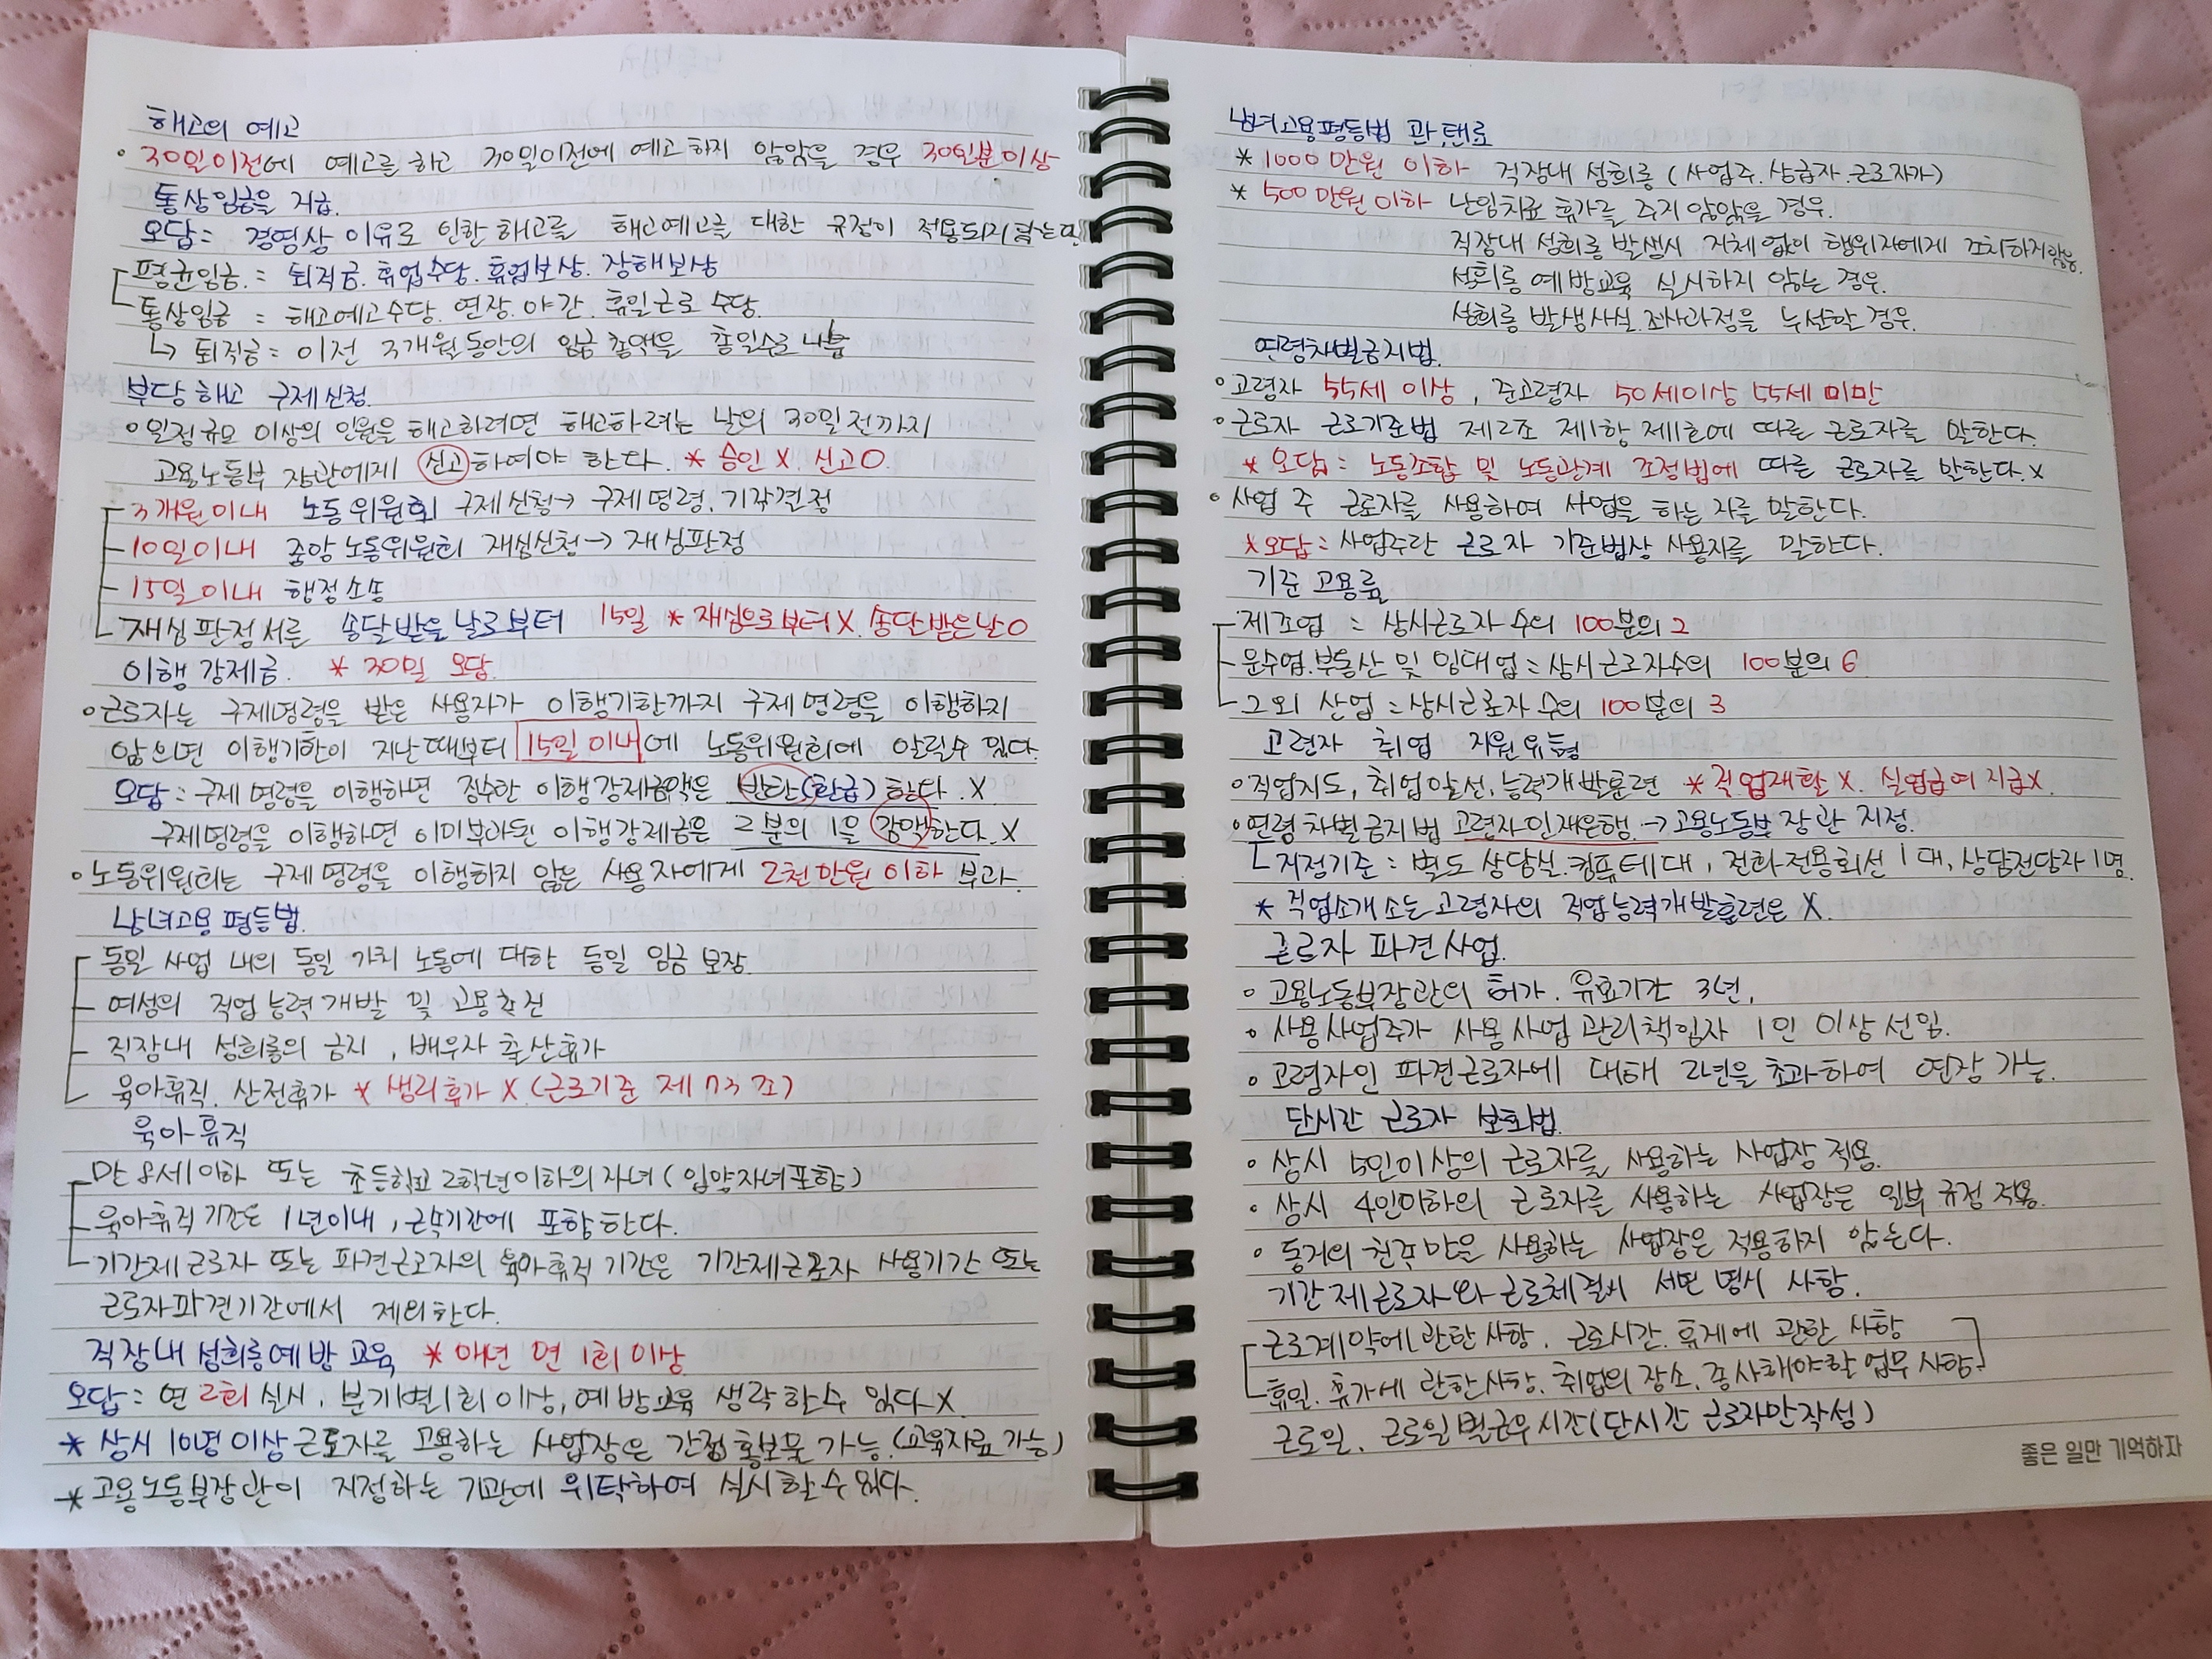 해고의 예고
• 30일이전에 예고를 하고 30일이전에 예고하지 않았을 경우 30일분이상
통상임금을 지급.
오답 = 경영상 이유로 인한 해고를 해고예고를 대한 규정이 적용되지 않는다
평균임금 = 퇴직금. 휴업수당. 휴업보상. 장해보상
통상임금 = 해고예고수당. 연장. 야간. 휴일근로수당.
↳ 퇴직금 = 이전 3개월동안의 임금 총액을 총일수로 나눔
부당해고 구제신청
• 일정규모 이상의 인원을 해고하려면 해고하려는 날의 30일전까지
고용노동부 장관에게 신고하여야 한다. * 승인 X. 신고O.
3개월이내 노동위원회 구제신청→구제명령. 기각결정
10일이내 중앙노동위원회 재심신청→재심판정
15일이내 행정소송
재심판정서를 송달받을날로부터 15일 * 재심으로부터X. 송달받은날O
이행강제금. * 30일 오답.
• 근로자는 구제명령을 받은 사용자가 이행기한까지 구제명령을 이행하지
않으면 이행기한이 지난때부터 15일이내에 노동위원회에 알릴수 있다.
오답 = 구제명령을 이행하면 징수한 이행강제금액은 반환(환급)한다. X
구제명령을 이행하면 이미부과된 이행강제금은 2분의 1을 감액한다. X
• 노동위원회는 구제명령을 이행하지 않은 사용자에게 2천만원 이하 부과.
남녀고용평등법.
동일 사업 내의 동일 가치 노동에 대한 동일 임금보장.
여성의 직업능력개발 및 고용촉진
직장내 성희롱의 금지, 배우자 출산휴가
육아휴직. 산전휴가 * 생리휴가 X (근로기준 제73조)
육아휴직
만 8세이하 또는 초등학교 2학년이하의 자녀(입양자녀포함)
육아휴직기간은 1년이내, 근속기간에 포함한다.
기간제근로자 또는 파견근로자의 육아휴직 기간은 기간제근로자 사용기간 또는
근로자파견기간에서 제외한다.
직장내성희롱예방교육 * 매년 연 1회 이상
오답 = 연 2회 실시, 분기별1회 이상, 예방교육 생략할수 있다 X
* 상시 10명 이상 근로자를 고용하는 사업장은 간접홍보물 가능. (교육자료 가능)
* 고용노동부장관이 지정하는 기관에 위탁하여 실시할수있다.
남녀고용평등법 과태료
* 1000만원 이하 직장내 성희롱 (사업주. 상급자. 근로자가)
* 500만원이하 난임치료 휴가를 주지 않았을 경우.
직장내 성희롱 발생시 지체없이 행위자에게 조치하지않음.
성희롱 예방교육 실시하지 않는 경우.
성희롱 발생사실. 조사과정을 누설한 경우.
연령차별금지법.
• 고령자 55세 이상, 준고령자 50세이상 55세 미만
• 근로자 근로기준법 제2조 제1항 제1호에 따른 근로자를 말한다.
* 오답 = 노동조합 및 노동관계 조정법에 따른 근로자를 말한다. X
• 사업 주 근로자를 사용하여 사업을 하는 자를 말한다.
* 오답 = 사업주란 근로자 기준법상 사용자를 말한다.
기준 고용률
제조업 = 상시근로자 수의 100분의 2
운수업. 부동산 및 임대업 = 상시근로자수의 100분의 6
그외 산업 = 상시근로자 수의 100분의 3
고령자 취업 지원유형
• 직업지도, 취업알선, 능력개발훈련 * 직업재활 X. 실업급여 지급X.
• 연령차별금지법 고령자인재은행 → 고용노동부장관 지정.
지정기준 : 별도 상담실. 컴퓨터1대, 전화전용회선 1대, 상담전담자 1명.
* 직업소개소는 고령자의 직업능력개발훈련은 X.
근로자 파견사업.
• 고용노동부장관의 허가. 유효기간 3년.
• 사용사업주가 사용사업관리책임자 1인 이상선임.
• 고령자인 파견근로자에 대해 2년을 초과하여 연장 가능.
단시간 근로자 보호법.
• 상시 5인이상의 근로자를 사용하는 사업장 적용.
• 상시 4인이하의 근로자를 사용하는 사업장은 일부 규정 적용.
• 동거의 친족만을 사용하는 사업장은 적용하지 않는다.
기간제근로자와 근로체결시 서면 명시 사항.
근로계약에관한사항. 근로시간. 휴게에 관한 사항
휴일. 휴가에 관한사항. 취업의 장소. 종사해야할 업무사항.
근로일. 근로일별근무시간(단시간 근로자만작성)
좋은 일만 기억하자